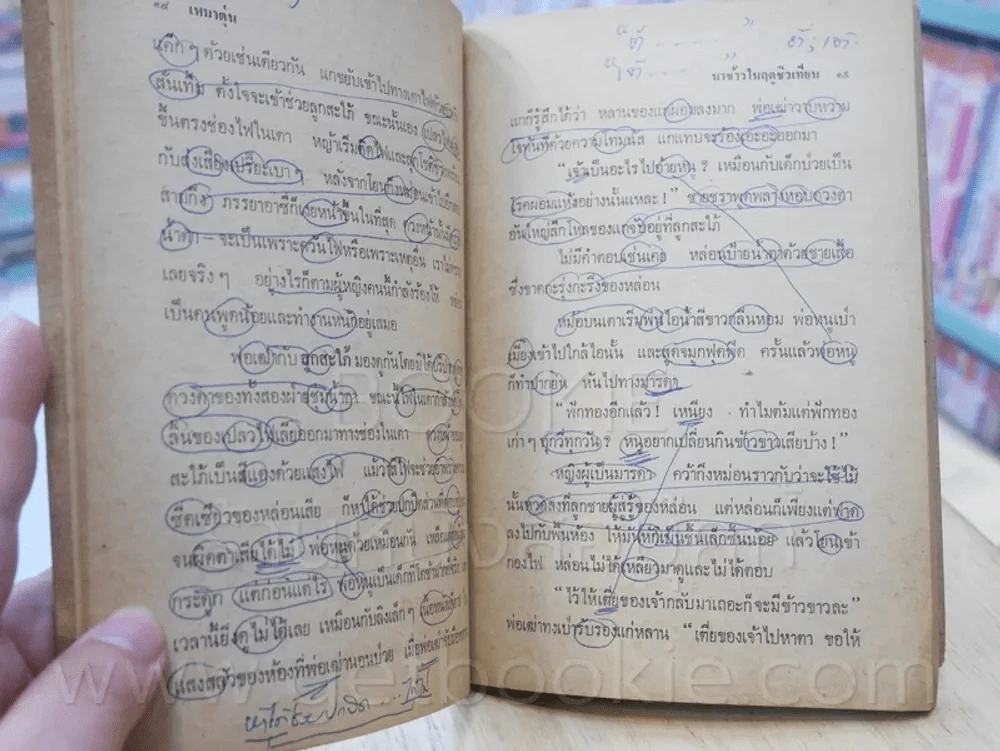 ๑๘ เหมาตุ้น
เด็กๆ ด้วยเช่นเดียวกัน แกขยับเข้าไปทางเตาไฟด้วย
สั่นเทิ้ม ตั้งใจจะเข้าช่วยลูกสะใภ้ ขณะนั้นเอง เปลวไฟ
ขึ้นตรงช่องไฟในเตา หญ้าเริ่มติดไฟและลุกโชติช่วง
กับส่งเสียงเปรี๊ยะเบาๆ หลังจากโยนกิ่งหม่อนเข้าไปอีก
สามกิ่ง ภรรยาอาซีก็เงยหน้าขึ้นในที่สุด ดวงหน้านั้นมี
น้ำตา — จะเป็นเพราะควันไฟหรือเพราะเหตุอื่น เราไม่
เลยจริงๆ อย่างไรก็ตามผู้หญิงคนนี้กำลังร้องไห้
เป็นคนพูดน้อยและทำงานหนักอยู่เสมอ
พ่อเฒ่ากับลูกสะใภ้มองดูกันโดยมิได้
ดวงตาของทั้งสองฝ่ายชุ่มน้ำตา ขณะนี้ไฟในเตา
ลิ้นของเปลวไฟเลียออกมาทางช่องในเตา
สะใภ้เป็นสีแดงด้วยแสงไฟ แม้ว่าสีไฟจะช่วย
ซีดเซียวของหล่อนเสีย ก็หาได้ช่วยปกปิดส่วนที่
จนผิดตาเสียได้ไม่ พ่อหนูด้วยเหมือนกัน เหลือแต่
กระดูก แต่ก่อนแต่ไร พ่อหนูเป็นเด็ก
เวลานี้ยิ่งดูไม่ได้เลย เหมือนกับลิงเล็กๆ
แสงสลัวของห้องที่พ่อเฒ่านอนป่วย เมื่อพ่อเฒ่า
หาได้ช่วยปกปิด....ได้ไม่
"ที่ - - - - -"
นาข้าวในฤดูชิวเทียน ๑๙
แกก็รู้สึกได้ว่า หลานของแกผอมลงมาก พ่อเฒ่าวาบหวาม
ใจทันทีด้วยความโทมนัส แกแทบจะร้องเอะอะออกมา
"เจ้าเป็นอะไรไปอ้ายหนู ? เหมือนกับเด็กป่วยเป็น
โรคผอมแห้งอย่างนั้นแหละ !" ชายชราพูดพลางหอบดวงตา
อันใหญ่ลึกโหลของแกจับอยู่ที่ลูกสะใภ้
ไม่มีคำตอบเช่นเคย หล่อนป้ายน้ำตาด้วยชายเสื้อ
ซึ่งขาดกะรุ่งกะริ่งของหล่อน
หม้อบนเตาเริ่มพ่นไอน้ำสีขาวกลิ่นหอม พ่อหนูเป๋า
เมียงเข้าไปใกล้ไอนั้น และสูดจมูกฟุดฟิด ครั้นแล้วพ่อหนู
ก็ทำปากยื่น หันไปทางมารดา
"ฟักทองอีกแล้ว ! เหนียง ทำไมต้มแต่ฟักทอง
เก่าๆ ทุกวี่ทุกวัน ? หนูอยากเปลี่ยนกินข้าวขาวเสียบ้าง !"
หญิงผู้เป็นมารดา คว้ากิ่งหม่อนราวกับว่าจะใช้ไม้
นั้นหวดลงที่ลูกชายผู้สู่รู้ของหล่อน แต่หล่อนก็เพียงแต่ฟาด
ลงไปกับพื้นห้อง ให้มันหักเป็นชิ้นเล็กชิ้นน้อย แล้วโยนเข้า
กองไฟ หล่อนไม่ได้เหลียวมาดูและไม่ได้ตอบ
"ไว้ให้เตี่ยของเจ้ากลับมาเถอะก็จะมีข้าวขาวละ"
พ่อเฒ่าทงเป๋ารับรองแก่หลาน "เตี่ยของเจ้าไปหาตา ขอให้
BOOKIE
www.getbookie.com